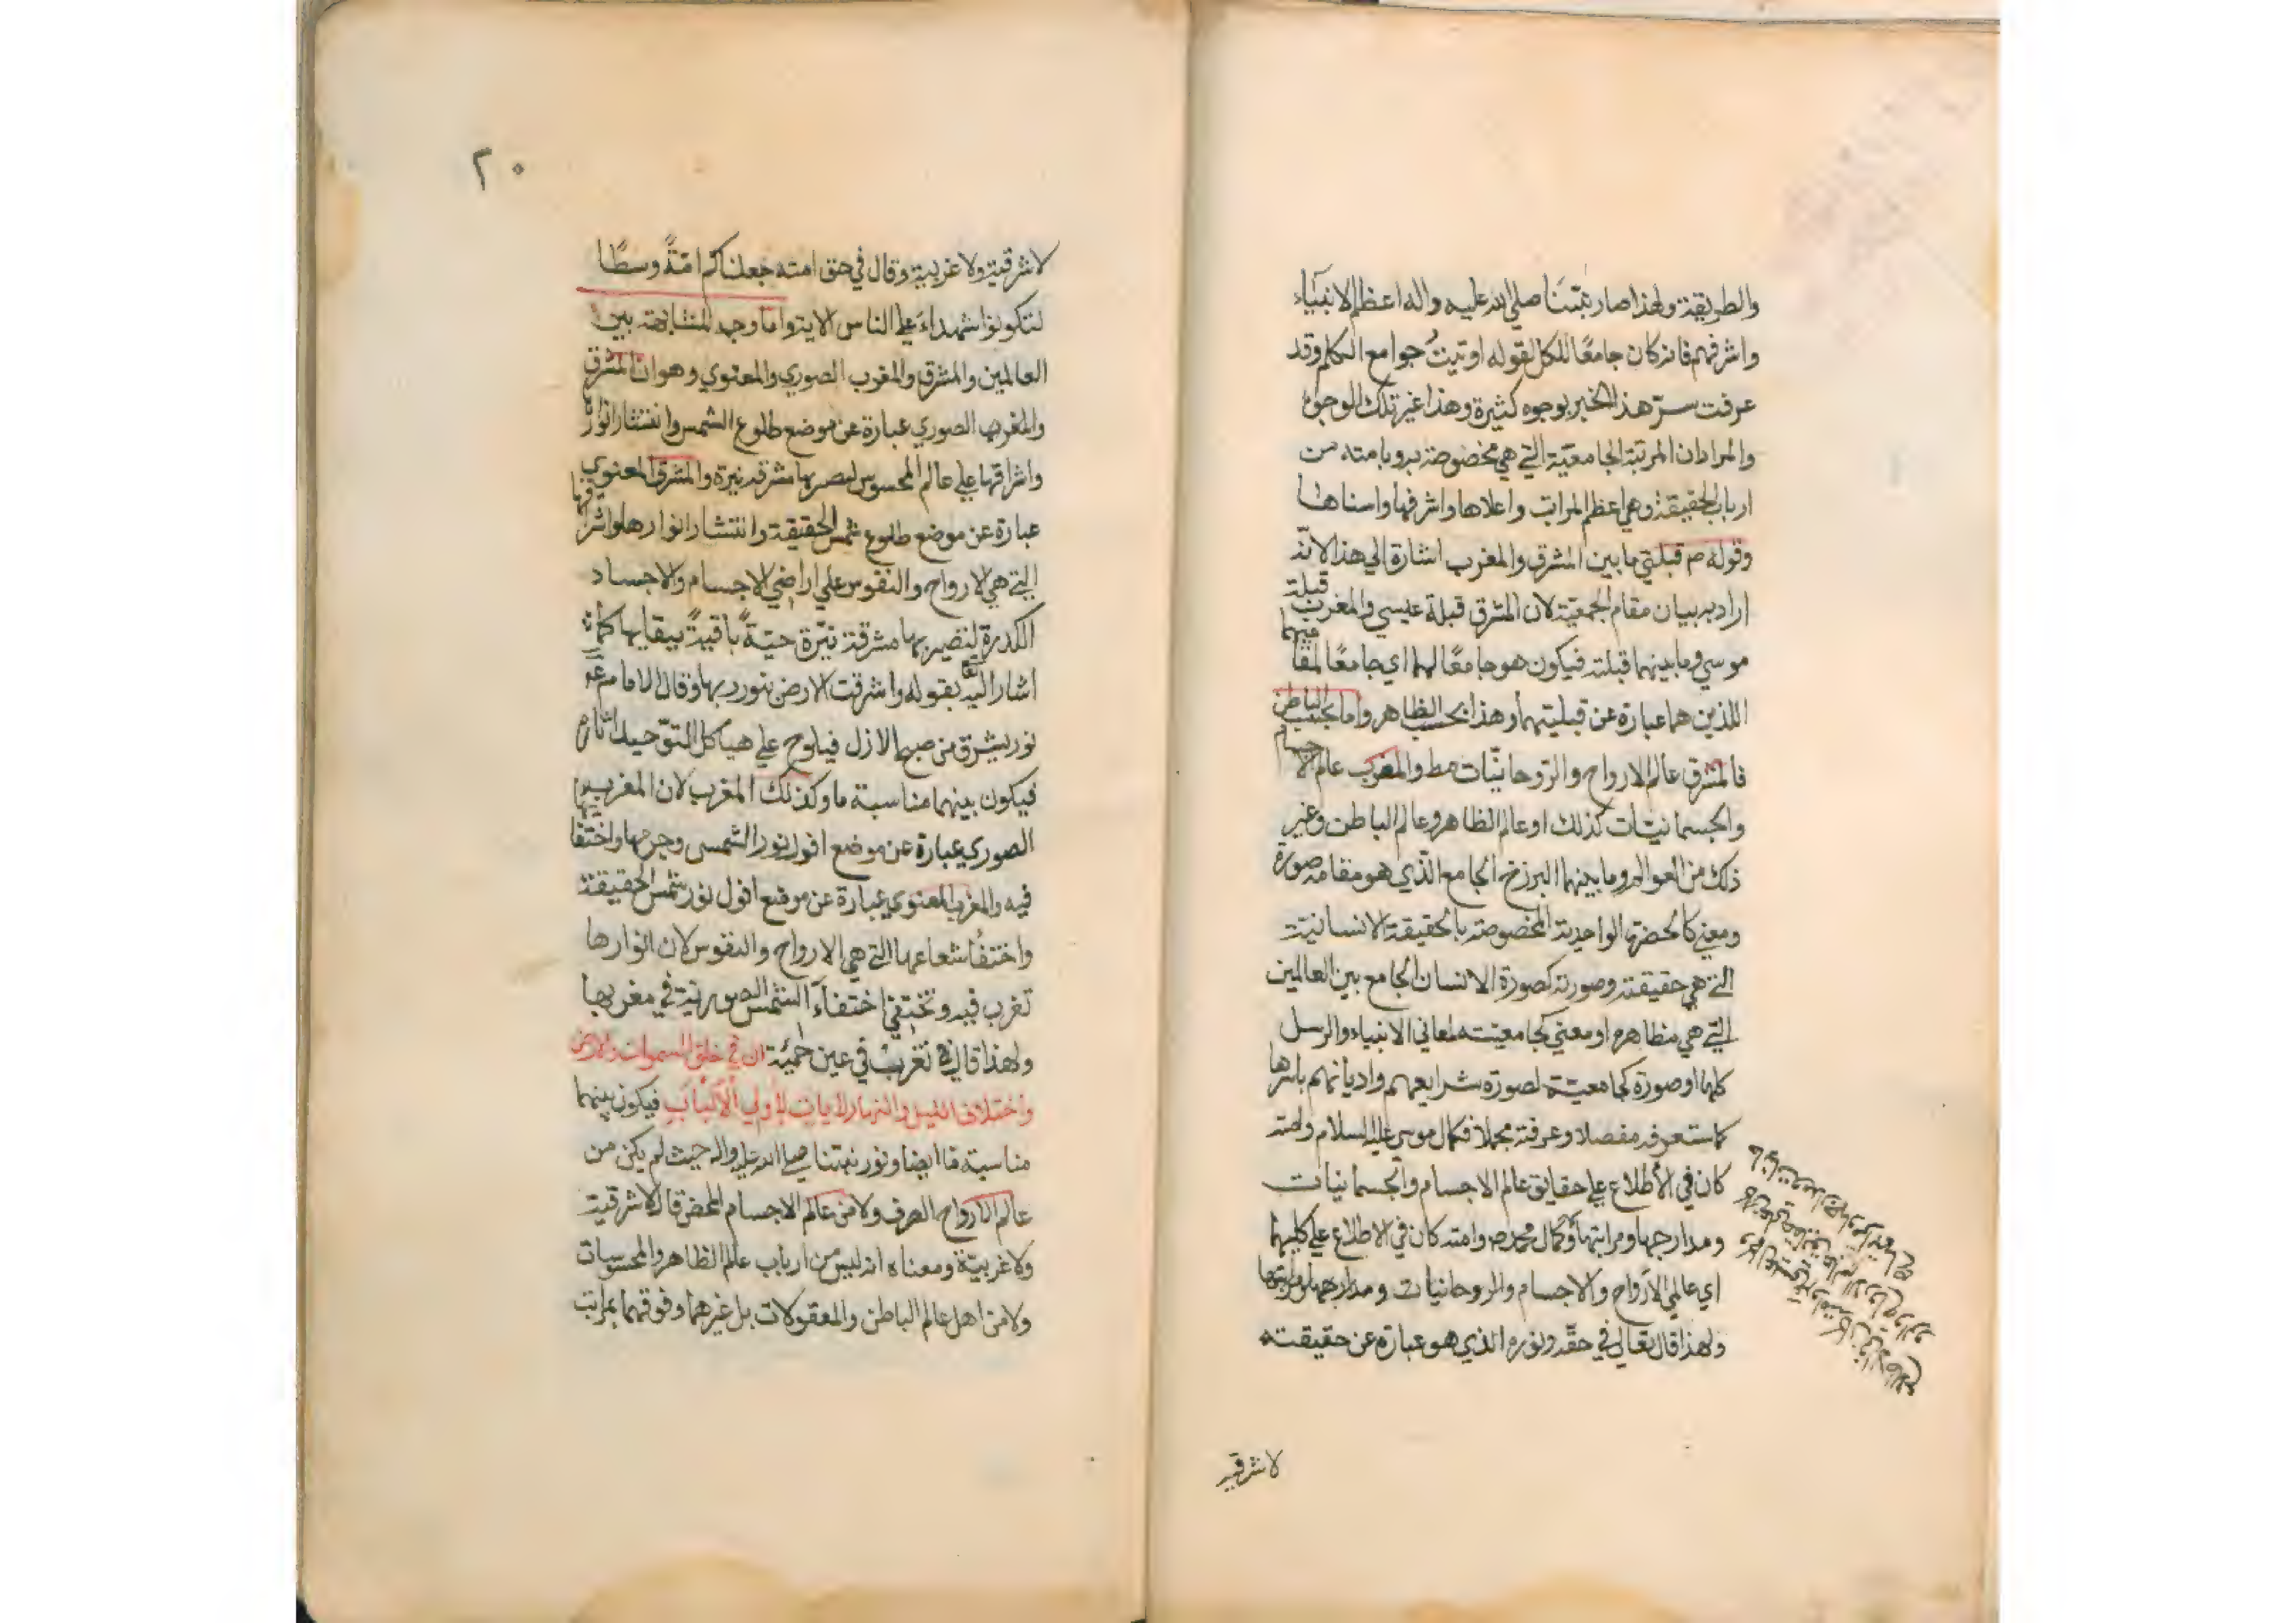 والطريقة ولهذا صار نبيّنا صلى الله عليه واله اعظم الانبياء
واشرفهم فانه كان جامعًا للكل لقوله اوتيتُ جوامع الكلم وقد
عرفت سرّ هذا الخبر بوجوه كثيرة وهذا غير تلك الوجوه
والمراد ان المرتبة الجامعيّة التي هي مخصوصة به وبامته من
ارباب الحقيقة وهي اعظم المراتب واعلاها واشرفها واسناها
وقوله ص قبلتي ما بين المشرق والمغرب اشارة الي هذا لانه
اراد به بيان مقام الجمعيّة لان المشرق قبلة عيسي والمغرب قبلة
موسي وما بينهما قبلته فيكون هو جامعًا لهما اي جامعًا لمقاميهما
اللذين هما عبارة عن قبلتيهما وهذا بحسب الظاهر واما بحسب الباطن
فالمشرق عالم الارواح والرّوحانيّات مط والمغرب عالم الاجسام
والجسمانيّات كذلك او عالم الظاهر وعالم الباطن وغير
ذلك من العوالم وما بينهما البرزخ الجامع الّذي هو مقامه صورة
ومعني كالحضرة الواحدية المخصوصة بالحقيقة الانسانية
التي هي حقيقته وصورته كصورة الانسان الجامع بين العالمين
التي هي مظاهره او معني كجامعيّته لمعاني الانبياء والرسل
كلها او صورة كجامعيّة لصورة شرايعهم واديانهم باسرها
كما ستعرفه مفصلا وعرفته مجملا فكمال موسي عليه السلام وامته
كان في الأطلاع علي حقايق عالم الاجسام والجسمانيات
ومدارجها ومراتبها وكمال محمد ص وامته كان في الاطلاع علي كليهما
اي عالمي الارواح والاجسام والروحانيات ومدارجها ومراتبها
ولهذا قال تعالي في حقّه ونوره الذي هو عبارة عن حقيقته
لا شرقية
٢٠
لا شرقية ولا غربية وقال في حق امته جعلناكم امّةً وسطًا
لتكونوا شهداء علي الناس الاية واما وجه المشابهة بين
العالمين والمشرق والمغرب الصوري والمعنوي وهو انّ المشرق
والمغرب الصوري عبارة عن موضع طلوع الشمس وانتشار انوارها
واشراقها علي عالم المحسوس ليصير بها مشرقة نيرة والمشرق المعنوي
عبارة عن موضع طلوع شمس الحقيقة وانتشار انوارها واشراقها
التي هي الارواح والنفوس علي اراضي الاجسام والاجساد
الكدرة ليصير بها مشرقة نيّرة حيّةً باقيةً ببقايها كما
اشار اليه تعا بقوله واشرقت الارض بنور ربها وقال الامام ع
نور يشرق من صبح الازل فيلوح علي هياكل التوّحيد اثاره
فيكون بينهما مناسبة ما وكذلك المغرب لان المغرب
الصوري عبارة عن موضع افول نور الشمس وجرمها واختفائها
فيه والمغرب المعنوي عبارة عن موضع افول نور شمس الحقيقة
واختفاء شعاعها التي هي الارواح والنفوس لان انوارها
تغرب فيه وتختفي اختفاء الشمس الصورية في مغربها
ولهذا قال تغرب في عين حمئة ان في خلق السموات والارض
واختلاف الليل والنهار لايات لأولي الألباب فيكون بينهما
مناسبة ما ايضا ونور نبيّنا صلى الله عليه واله حيث لم يكن من
عالم الارواح الصرف ولا من عالم الاجسام المحض قال لا شرقية
ولا غربيّة ومعناه انه ليس من ارباب عالم الظاهر والمحسوسات
ولا من اهل عالم الباطن والمعقولات بل غيرهما وفوقهما بمراتب